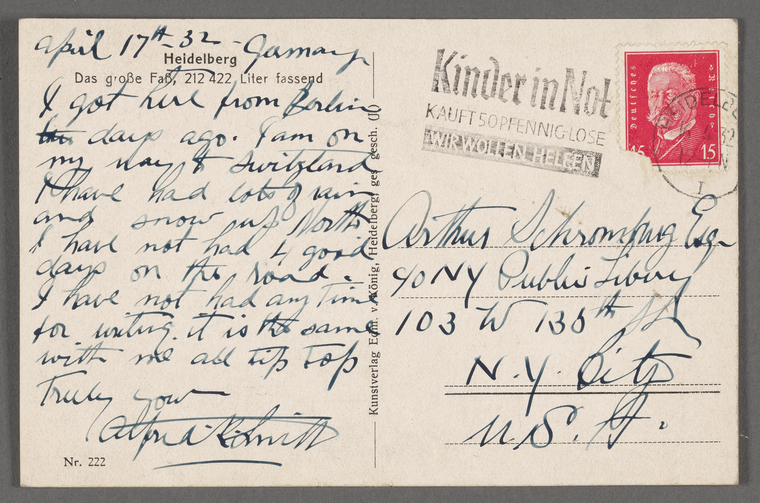 April 17th - 32 - Germany
Heidelberg
Das große Faß, 212 422 Liter fassend
I got here from Berlin
days ago. I am on
my way to Switzland
I have had lots of rain
and snow up North
I have not had 4 good
days on the road.
I have not had any time
for writing. it is the same
with me all tip top
Truly your
Alfred K. Smith
Nr. 222
Kunstverlag Edm. v. König, Heidelberg, ges. gesch.
Kinder in Not
KAUFT 50 PFENNIG-LOSE
WIR WOLLEN HELFEN
Deutsches Reich
15 15
HEIDELBERG
32
I
Arthur Schomburg Esq
c/o NY Public Library
103 W 135th St
N.Y. City
U.S. A.